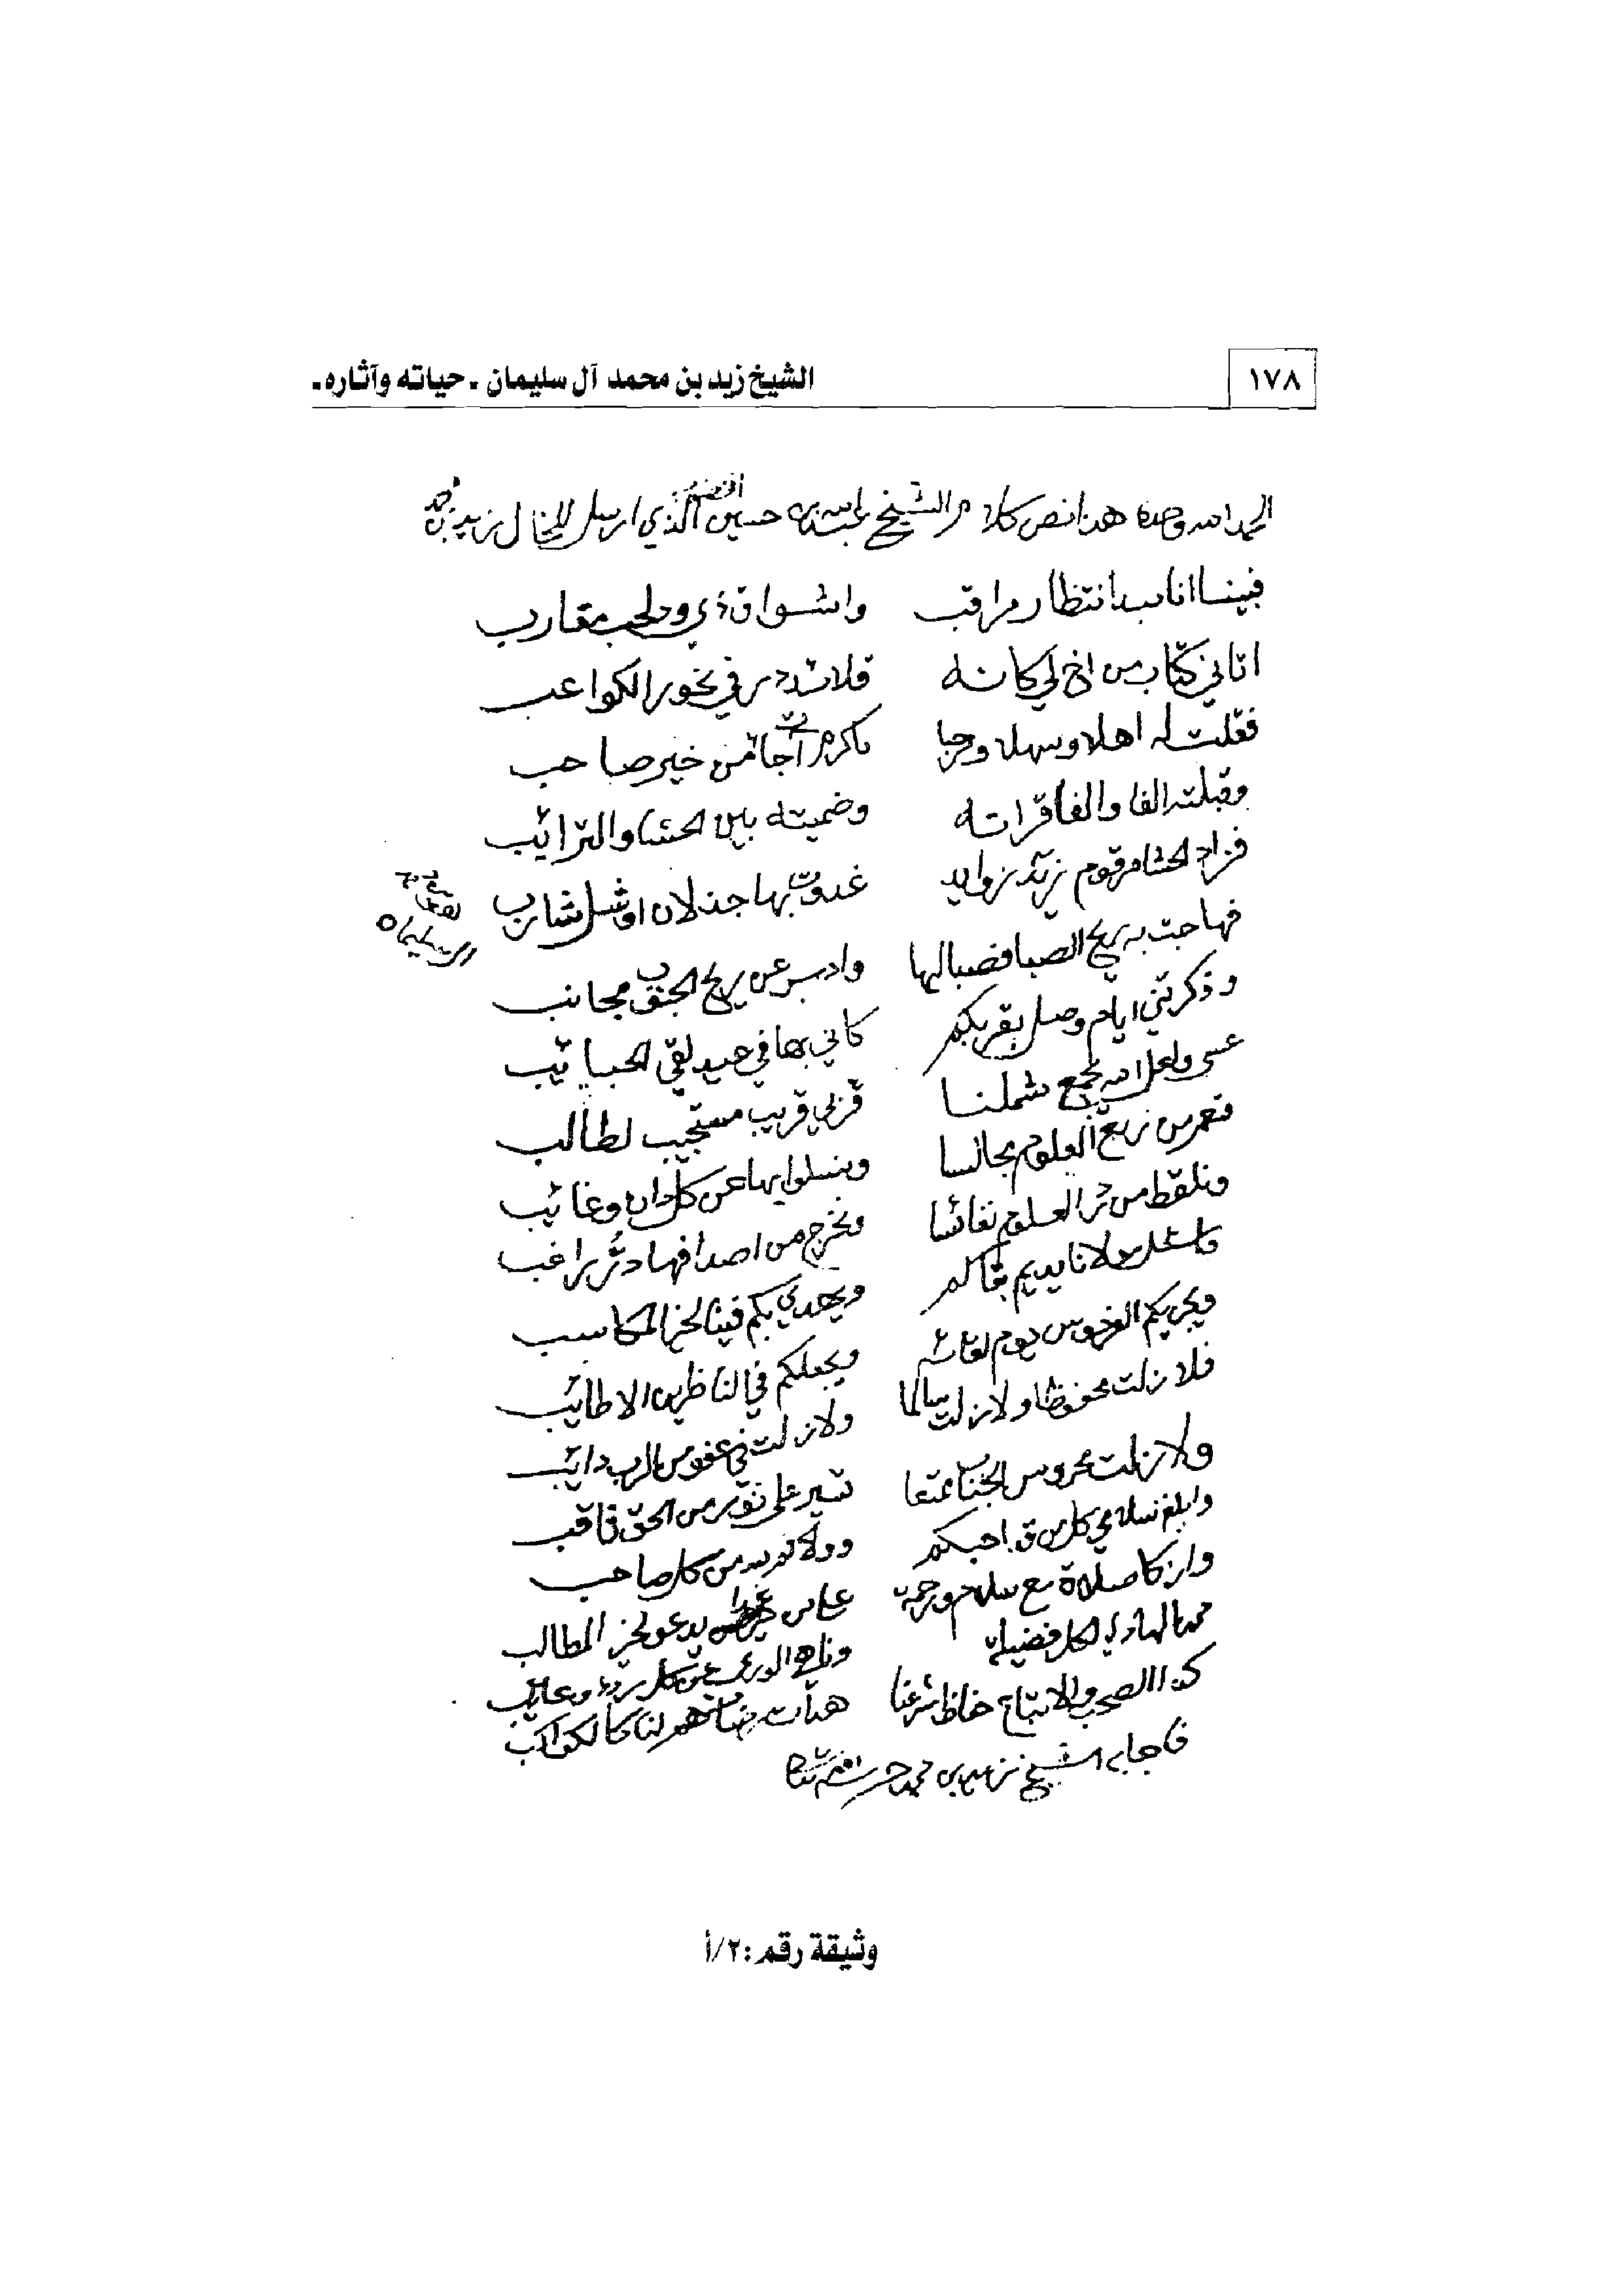 ١٧٨
الشيخ زيد بن محمد آل سليمان ـ حياته وآثاره ـ
الحمد لله وحده هذا نص كلام الشيخ عبدالله بن حسين المخضوب الذي ارسل للخال زيد بن محمد
فبينا انا بيد انتظار مراقب واشواق ذي ود لحب مقارب
اتاني كتاب من اخ لي كانه قلائد در في نحور الكواعب
فقلت له اهلا وسهلا ومرحبا باكرم آت جا من خير صاحب
وقبلته الفا والفا قراته وضميته بين الحشا والترائب
فزاد الحشا مرقوم زيد زوايد غدوت بها جذلان او مثل شارب
آل سليمان
فهاجت به ريح الصبا فصبا لها وادبر عن ريح الجنوب مجانب
وذكرتني ايام وصل بقربكم كاني بها في عيد لقي الحبايب
عسى ولعل الله يجمع شملنا قريب مستجيب لطالب
فنعمر من ربع العلوم مجالسا ونسلوا بها عن كل دان وغائب
ونلقط من در العلوم نفائسا ونخرج من اصدافها در راغب
واسئل مولانا يديم بقاكم ويهدي بكم فينا لخير المكاسب
ويجزيكم الفردوس يوم لقائه ويجعلكم في الناظرين الاطائب
فلا زلت محفوظا ولا زلت سالما ولا زلت في عفو من الرب دائب
ولا زلت محروس الجناب ممتعا تسير على نور من الحق ثاقب
وابلغ سلامي كل من احبكم من كل صاحب
وازكا صلاة مع سلام ورحمة على من غدا يدعو لخير المطالب
محمد الهادي لكل فضيلة وناهي الورى عن كل رده وعائب
كذا الصحب والاتباع حفاظ شرعنا هداة لنا كالكواكب
فاجابه الشيخ زيد بن محمد
وثيقة رقم: ٢/أ